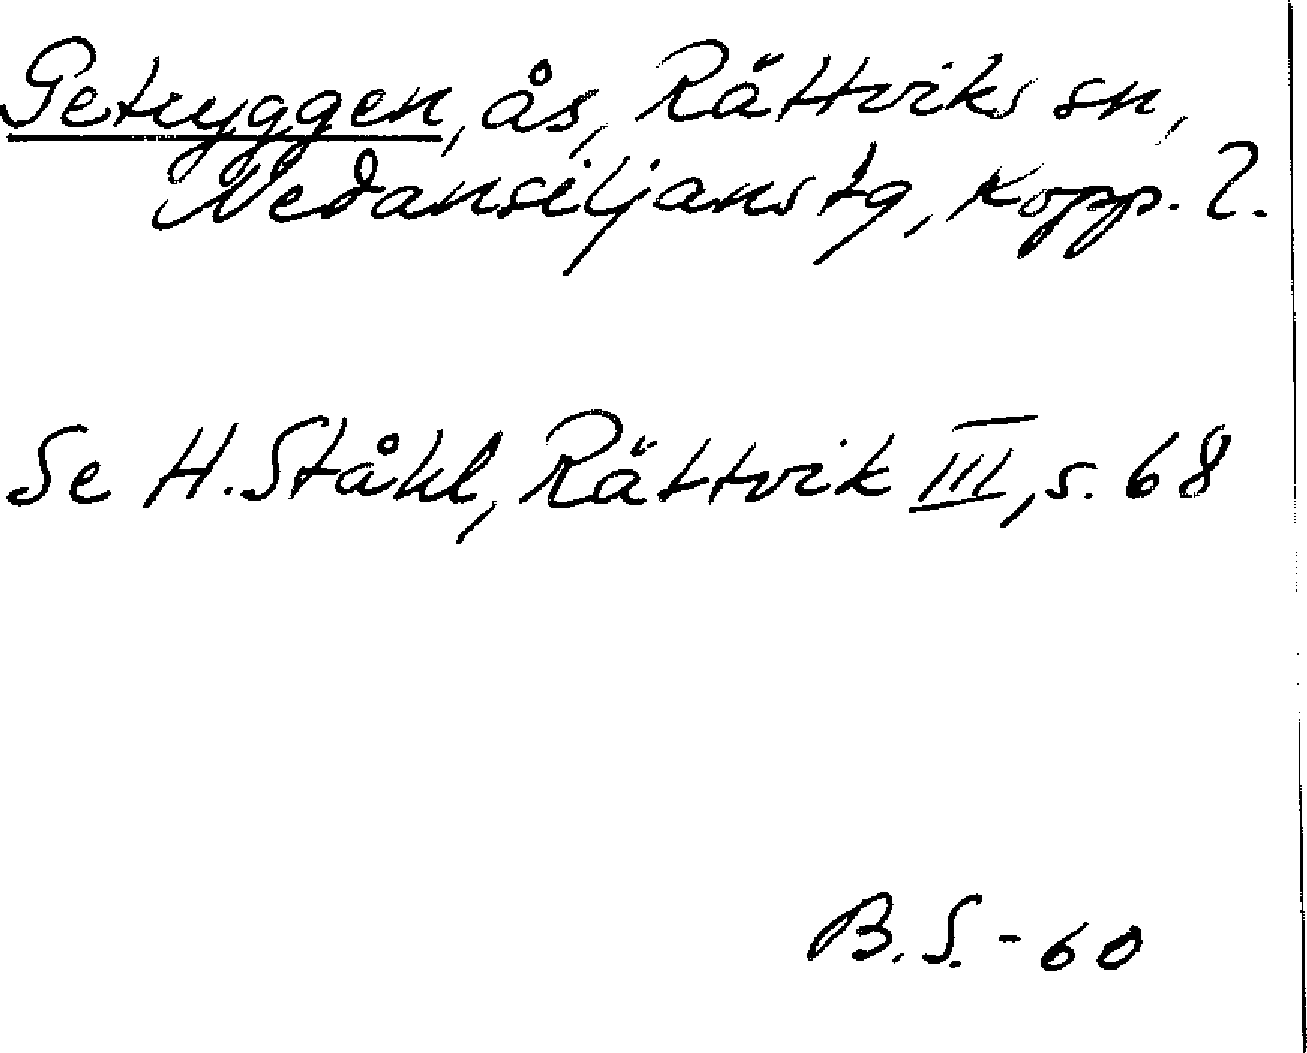 Getryggen, ås, Rättviks sn,
Nedansiljans tg, Kopp. l.
Se H. Ståhl, Rättvik III, s. 68
B. S. - 60